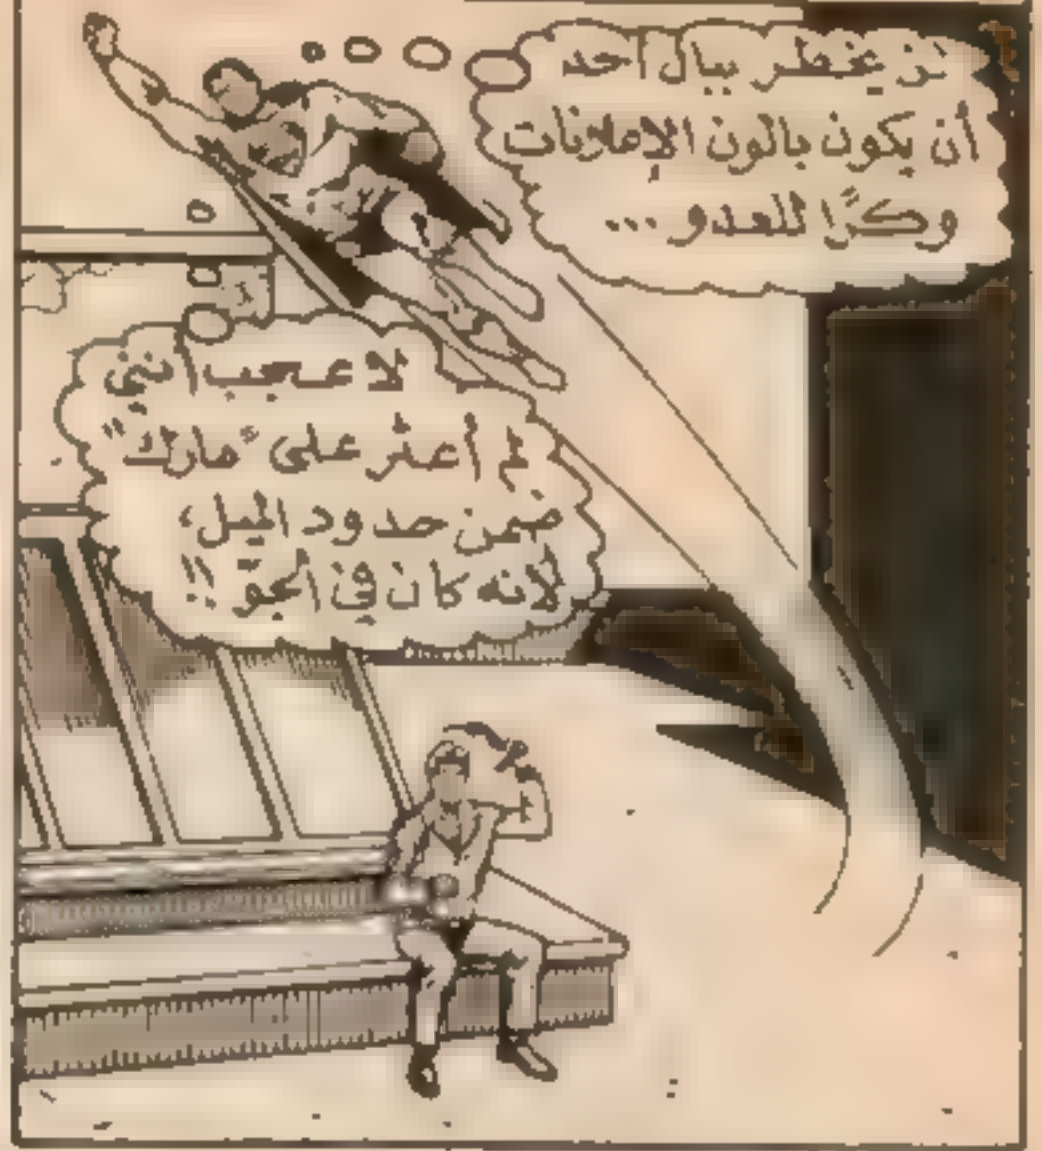 لن يخطر ببال أحد
أن يكون بالون الإعلانات
وكرًا للعدو ...
لا عجب أنني
لم أعثر على "مارك"
ضمن حدود الميل،
لانه كان في الجوّ !!